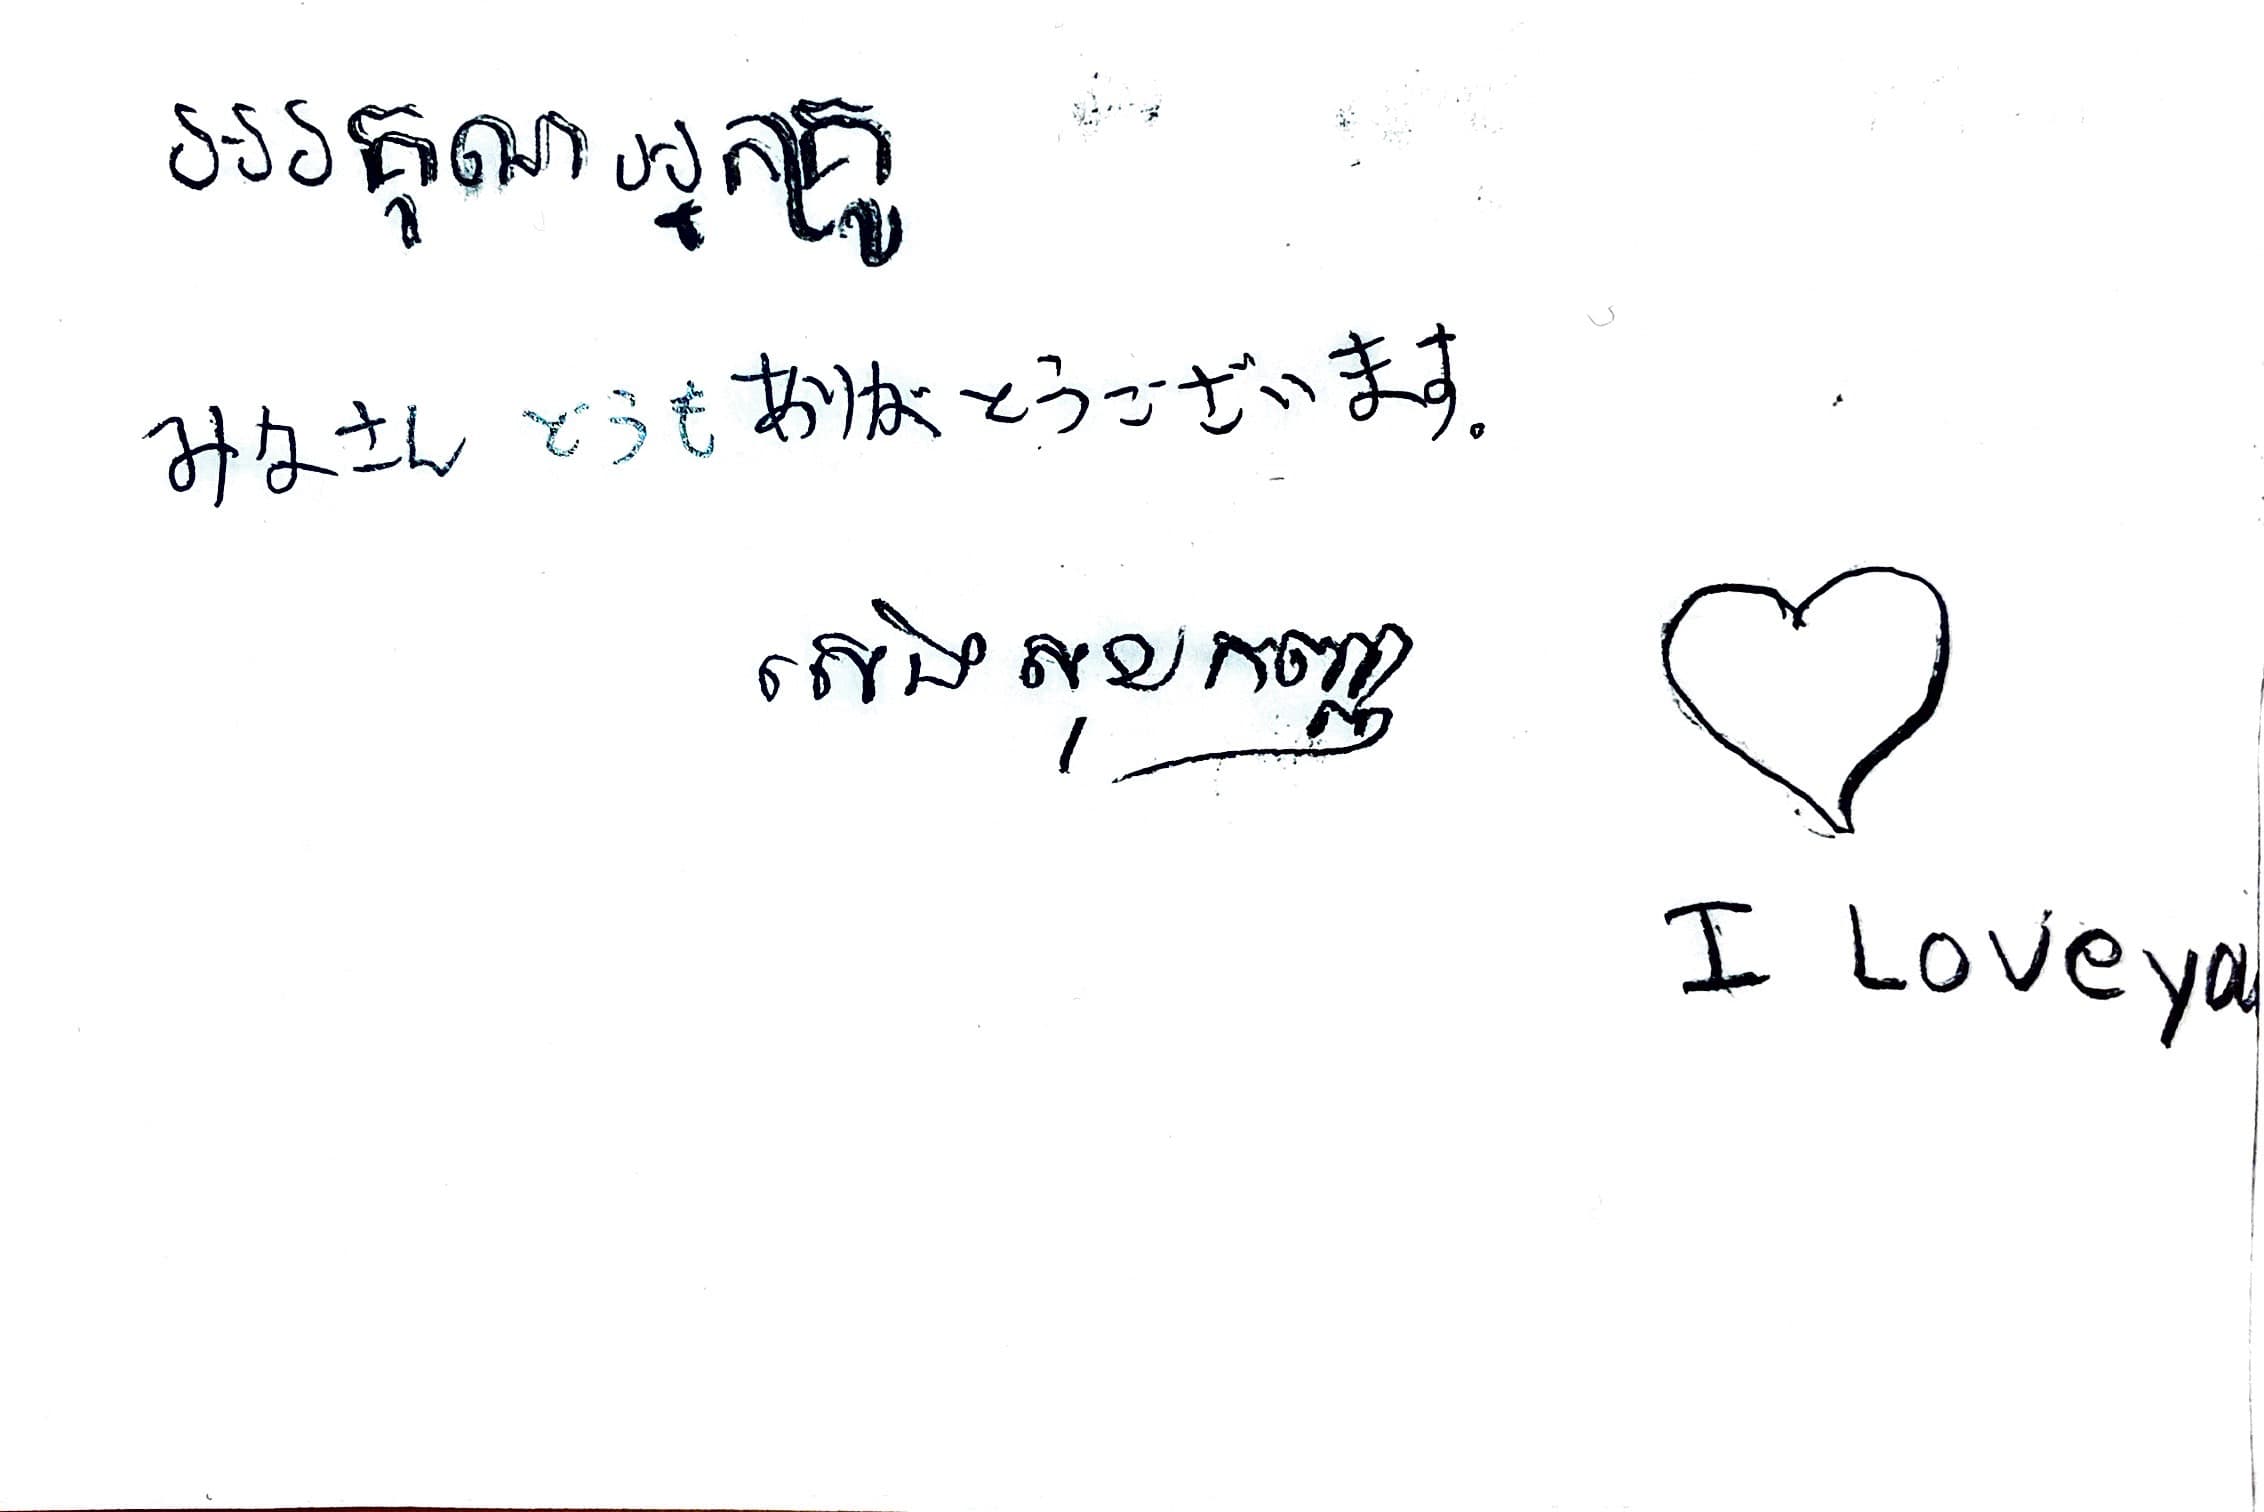 អរគុណអ្នកគ្រូ
みなさん どうも ありがとうございます。
សេង សុខកញ្ញា
I Love ya